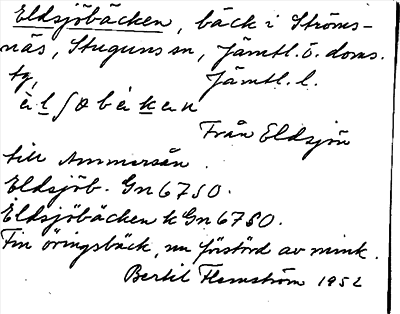 Eldsjöbäcken, bäck i Ströms-
näs, Stuguns sn, Jämtl. ö. doms.
tg, Jämtl. l.
Från Eldsjön
till Ammerån.
Eldsjöb. Gn 6750.
Eldsjöbäcken k Gn 6750.
Fin öringsbäck, nu förstörd av mink.
Bertil Flemström 1952